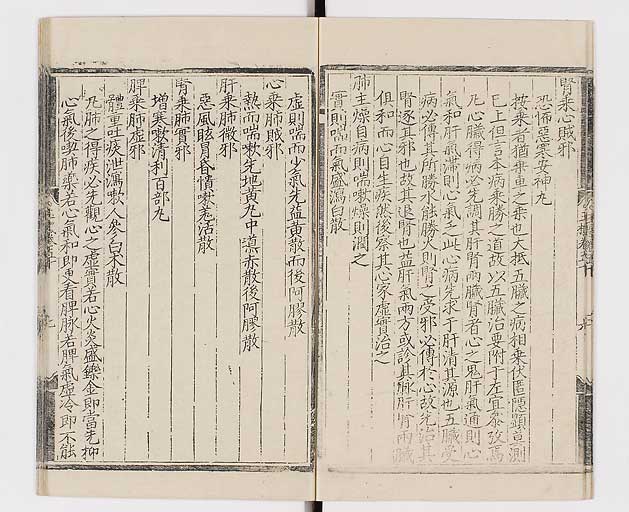 腎乘心賊邪
恐怖惡寒安神丸
按乘者猶乘車之乘也大抵五臟之病相乘伏匿隱顯莫測
已上但言本病乘勝之道故以五臟治要附于左宜參攷焉
凡心臟得病必先調其肝腎兩臟腎者心之鬼肝氣通則心
氣和肝氣滯則心氣乏此心病先求于肝清其源也五臟受
病必傳其所勝水能勝火則腎之受邪必傳於心故先治其
腎逐其邪也故其退腎也益肝氣兩方或診其脉肝腎兩臟
俱和而心自生疾然後察其心家虛實治之
肺主燥自病則喘嗽燥則潤之
實則喘而氣盛瀉白散
虛則喘而少氣先益黃散而後阿膠散
心乘肺賊邪
熱而喘嗽先地黃丸中導赤散後阿膠散
肝乘肺微邪
惡風眩冒昏憒嗽羌活散
腎乘肺實邪
增寒嗽清利百部丸
脾乘肺虛邪
體重吐痰泄瀉嗽人參白朮散
凡肺之得疾必先觀心之虛實若心火炎盛鑠金即當先抑
心氣後喫肺藥若心氣和即更看脾脉若脾氣虛冷即不能